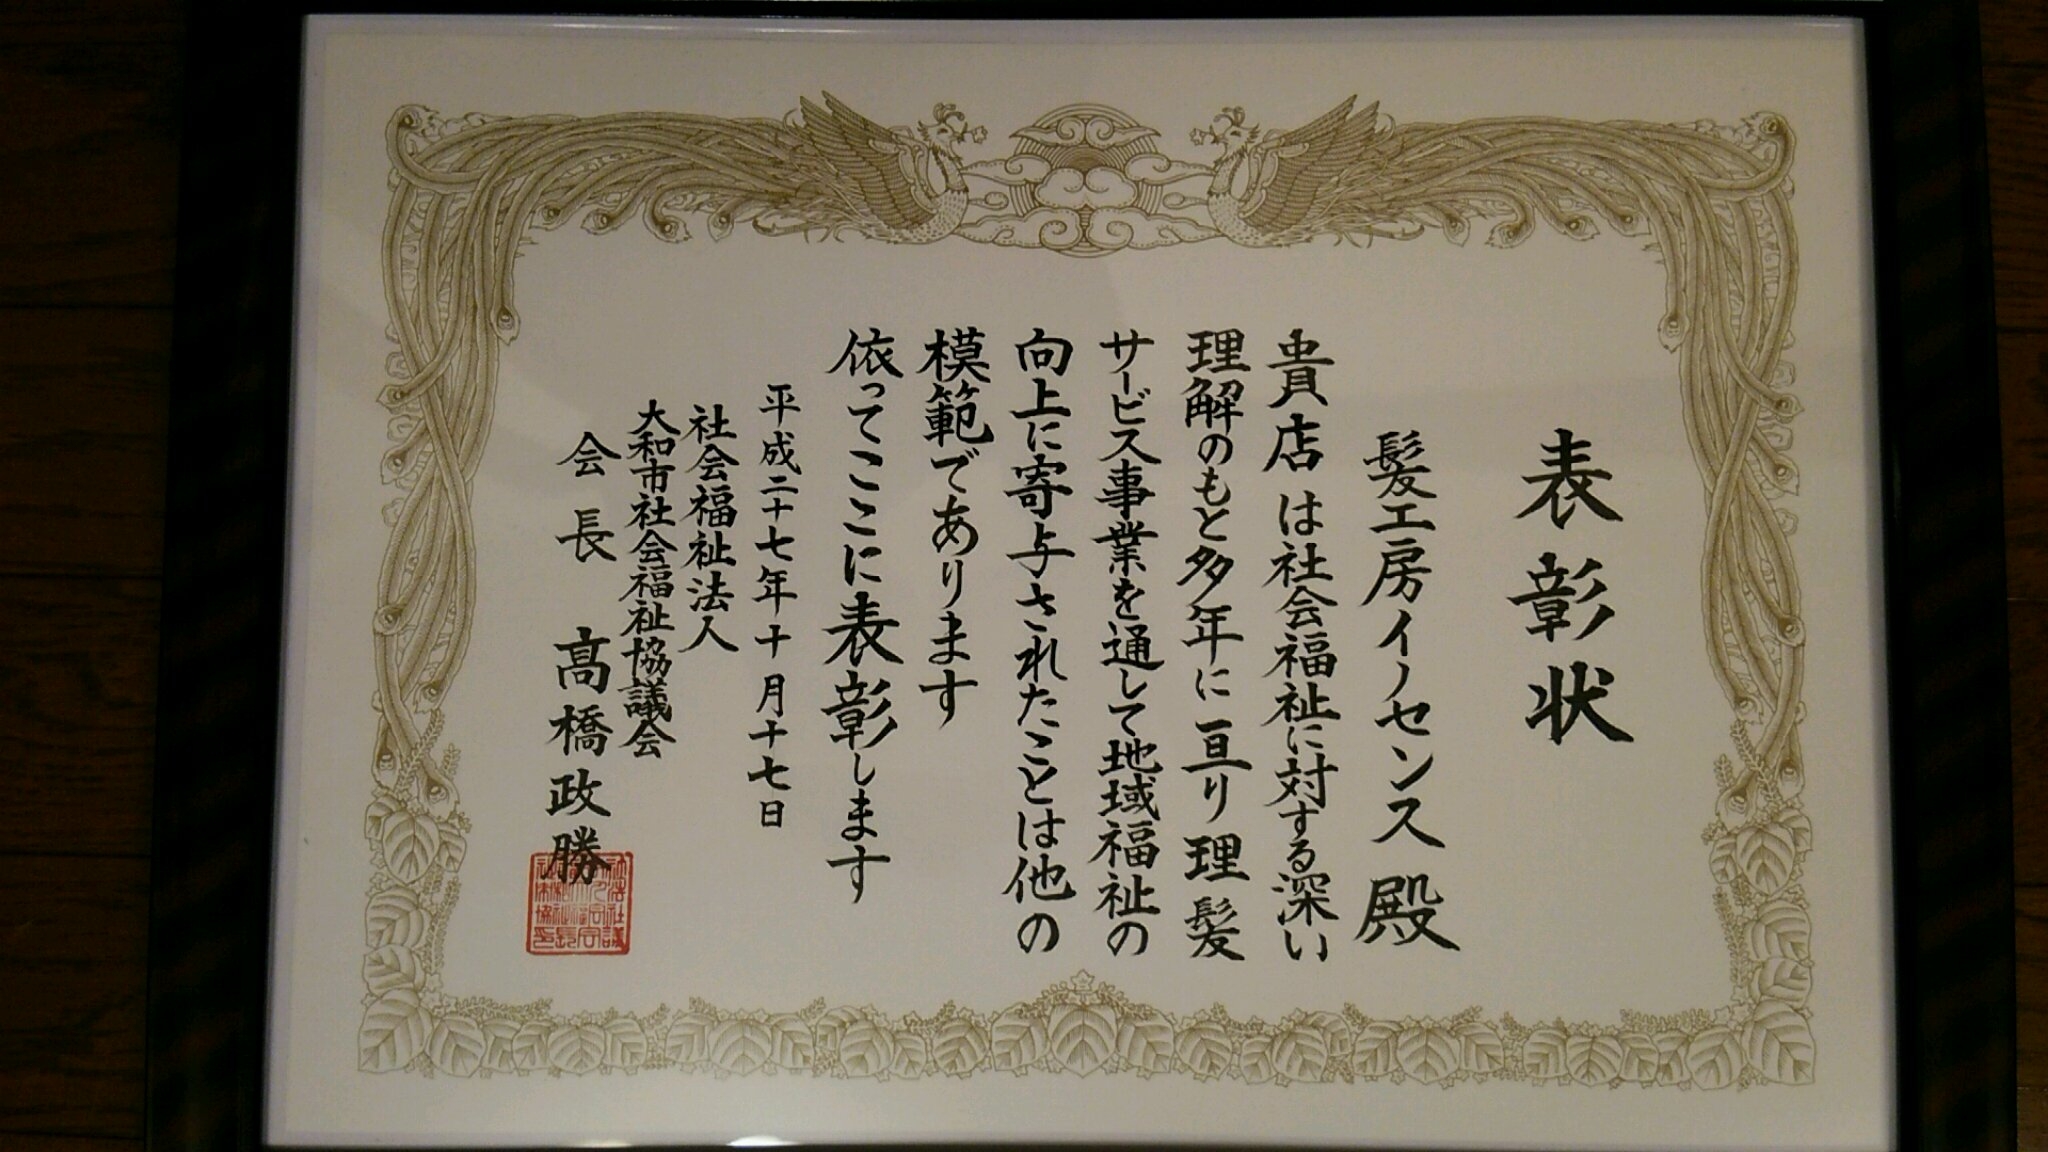 表彰状
髪工房イノセンス殿
貴店は社会福祉に対する深い
理解のもと多年に亘り理髪
サービス事業を通して地域福祉の
向上に寄与されたことは他の
模範であります
依ってここに表彰します
平成二十七年十月十七日
社会福祉法人
大和市社会福祉協議会
会長 髙橋政勝